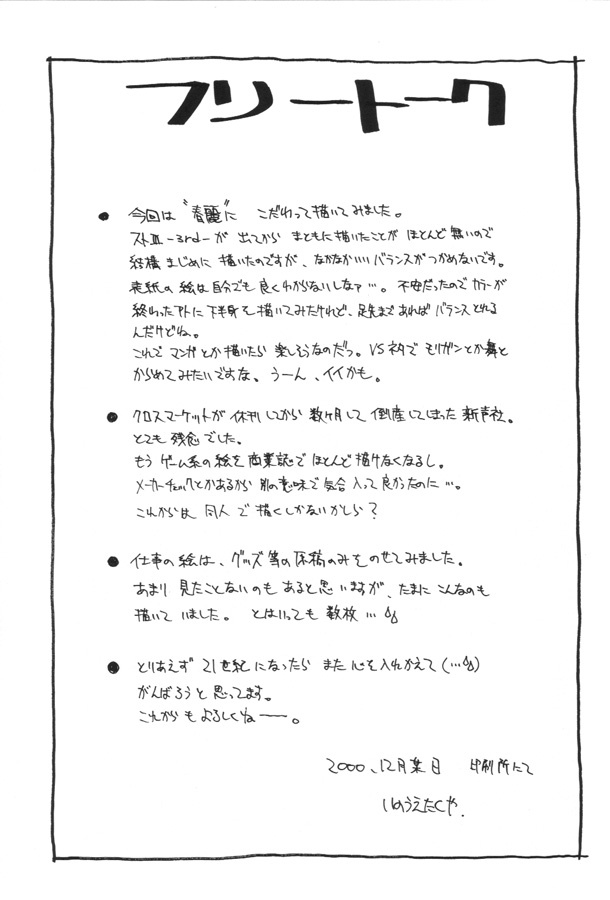 フリートーク
● 今回は"春麗"に こだわって描いてみました。
ストⅢ-3rd-が 出てから まともに描いたことが ほとんど無いので
結構まじめに 描いたのですが、なかなかいいバランスがつかめないです。
表紙の絵は自分でも良くわからないしなァ…。不安だったのでカラーが
終わったアトに下半身を描いてみたけれど、足先まであればバランスとれる
んだけどね。
これで マンガとか描いたら 楽しそうなのだっ。VSネタで モリガンとか舞と
からめてみたいですな、うーん、イイかも。
● クロスマーケットが 休刊してから 数ヶ月して 倒産してしまった 新声社。
とても 残念でした。
もう ゲーム系の絵を 商業誌で ほとんど描けなくなるし。
メーカーチェックとかあるから 別の意味で気合入って良かったのに…。
これからは 同人で 描くしかないかしら?
● 仕事の絵は、グッズ等の原稿のみをのせてみました。
あまり 見たことないのも あると思いますが、たまに こんなのも
描いていました。 とはいっても 数枚…
● とりあえず 21世紀になったら また心を入れかえて(…)
がんばろうと思ってます。
これからもよろしくねー。
2000、12月某日 印刷所にて
いのうえたくや.